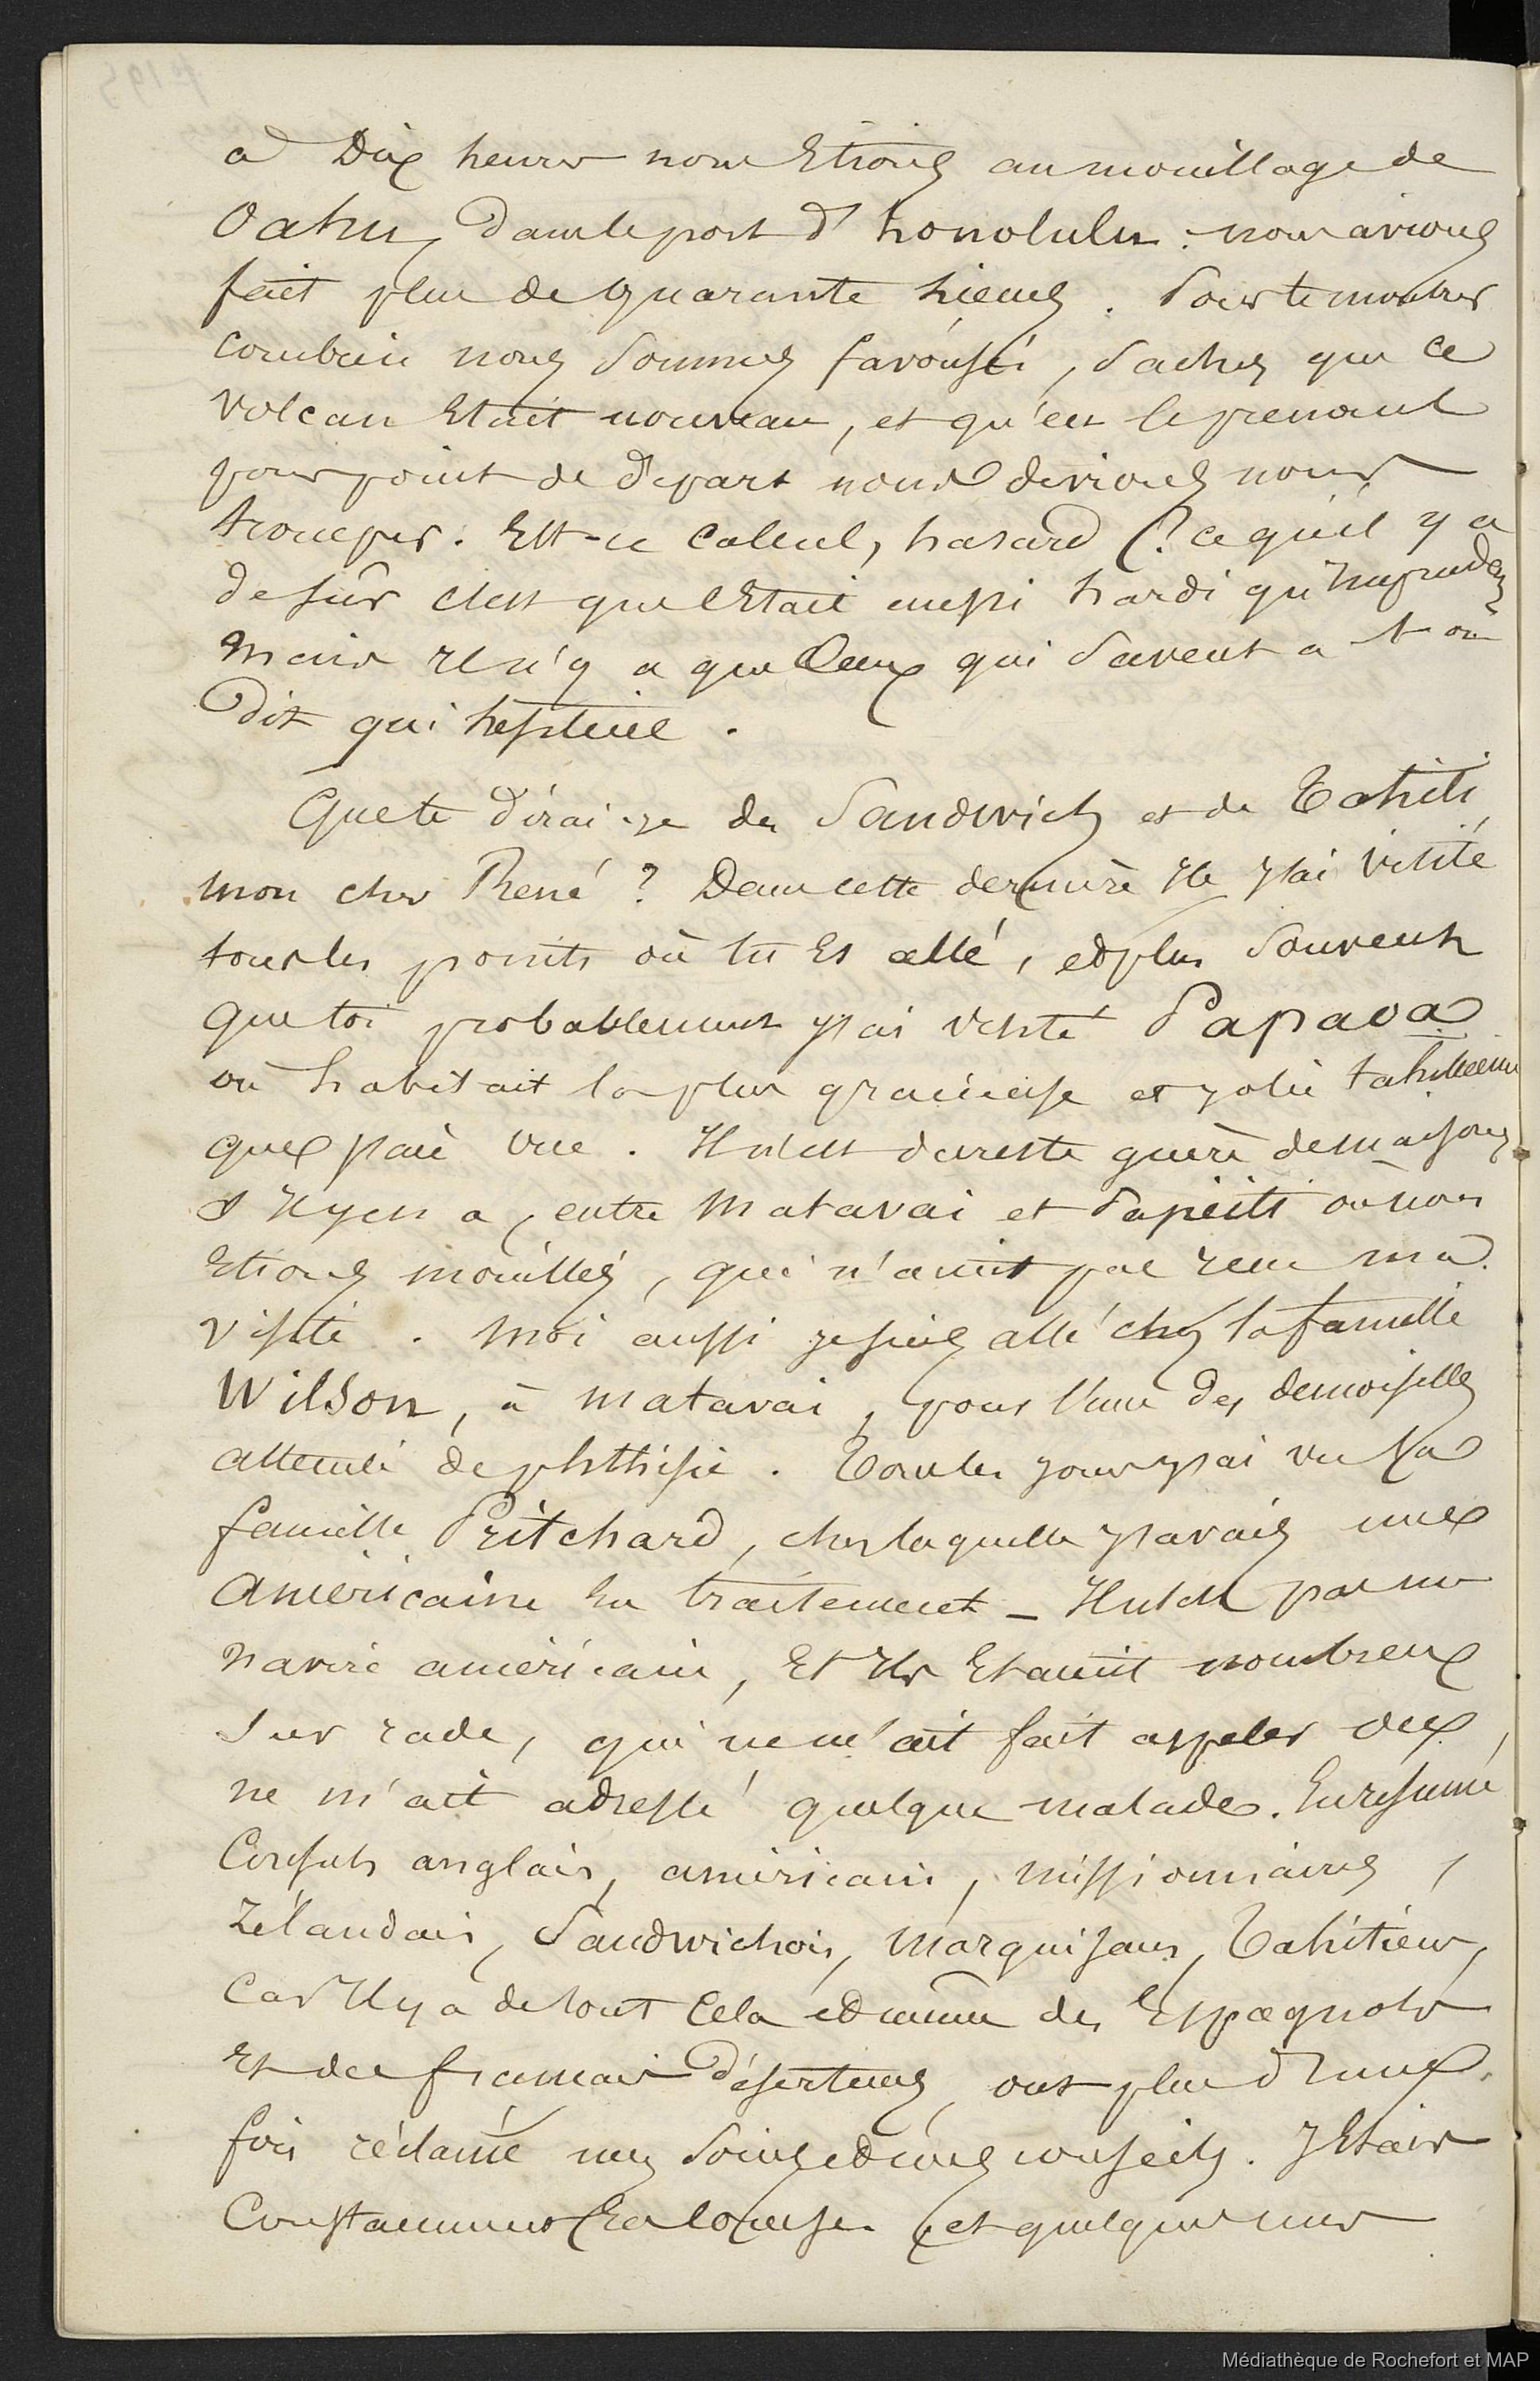 à Dix heures nous Etions au mouillage de
Oahu, dans le port d'honolulu. nous avions
fait plus de quarante lieues. Pour te montrer
combien nous sommes favorisés, saches que ce
volcan Etait nouveau, et qu'en le prenant
pour point de départ nous devions nous
tromper. Est-ce calcul, hasard ? ce qu'il y a
de sûr c'est que c'Etait aussi hardi qu'imprudent
mais il n'y a que Ceux qui savent a t-on
dit qui
Que te dirai-je des Sandwich et de Tahiti,
mon cher René ? Dans cette dernière Ile j'ai visité
tous les points où tu Es allé, et plus souvent
que toi probablement j'ai visité Papaoa
où habitait la plus gracieuse et jolie tahitienne
que j'aie vue. Il n'est du reste guère de maisons
s'Il y en a, entre Matavai et Papeïti où nous
Etions mouillés, qui n'aient pas reçu ma
visite. Moi aussi je suis allé chez la famille
Wilson, à Matavai, pour l'une des demoiselles
atteinte de phthisie. Tous les jours j'ai vu la
famille Pritchard, chez laquelle j'avais une
Américaine En traitement - Il n'est pas un
navire américain, Et Ils Etaient nombreux
sur rade, qui ne m'ait fait appeler ou
ne m'ait adressé quelque malade. En résumé,
Consuls anglais, américain, missionnaires,
Zélandais, Sandwichois, Marquisans, Tahitiens,
Car Il y a de tout cela et même des Espagnols
Et des français déserteurs, ont plus d'une
fois réclamé mes soins et mes conseils. J'Etais
Constamment En course. (et quelques uns